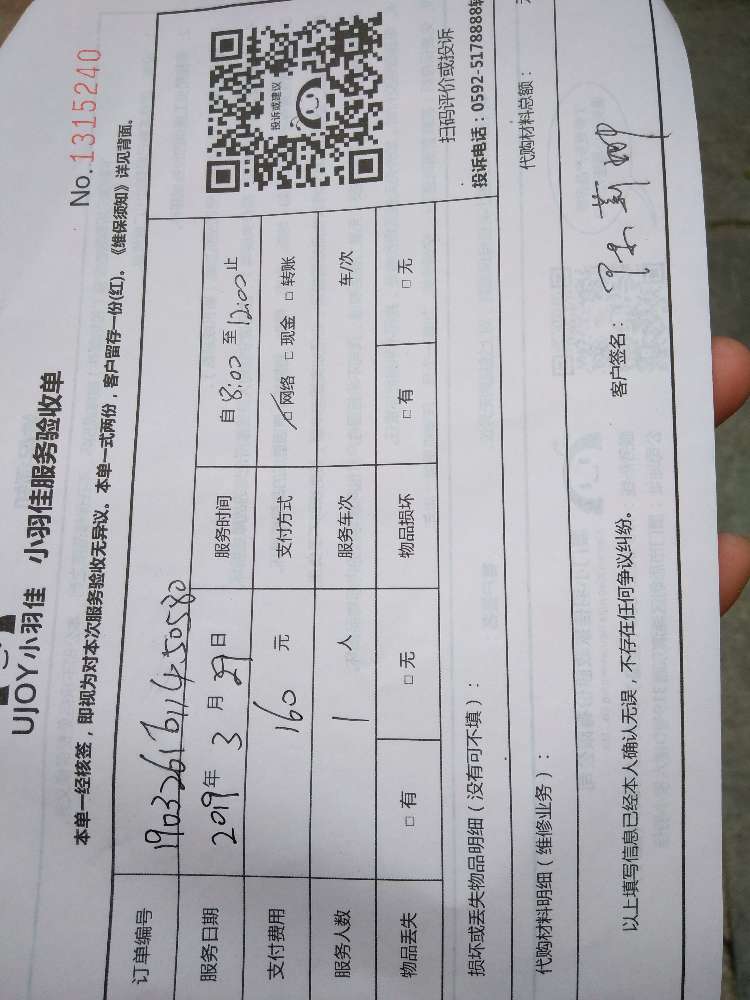 UJOY小羽佳 小羽佳服务验收单
No.1315240
本单一经核签，即视为对本次服务验收无异议。本单一式两份，客户留存一份(红)。《维保须知》详见背面。
订单编号
服务日期 2019年 3 月 29 日 服务时间 自 8:00 至 12:00 止
支付费用 160 元 支付方式 ☑网络 □现金 □转账
服务人数 1 人 服务车次 车/次
物品丢失 □有 □无 物品损坏 □有 □无
投诉或建议
扫码评价或投诉
投诉电话：0592-5178888转
损坏或丢失物品明细（没有可不填）：
代购材料明细（维修业务）： 代购材料总额：
以上填写信息已经本人确认无误，不存在任何争议纠纷。 客户签名：